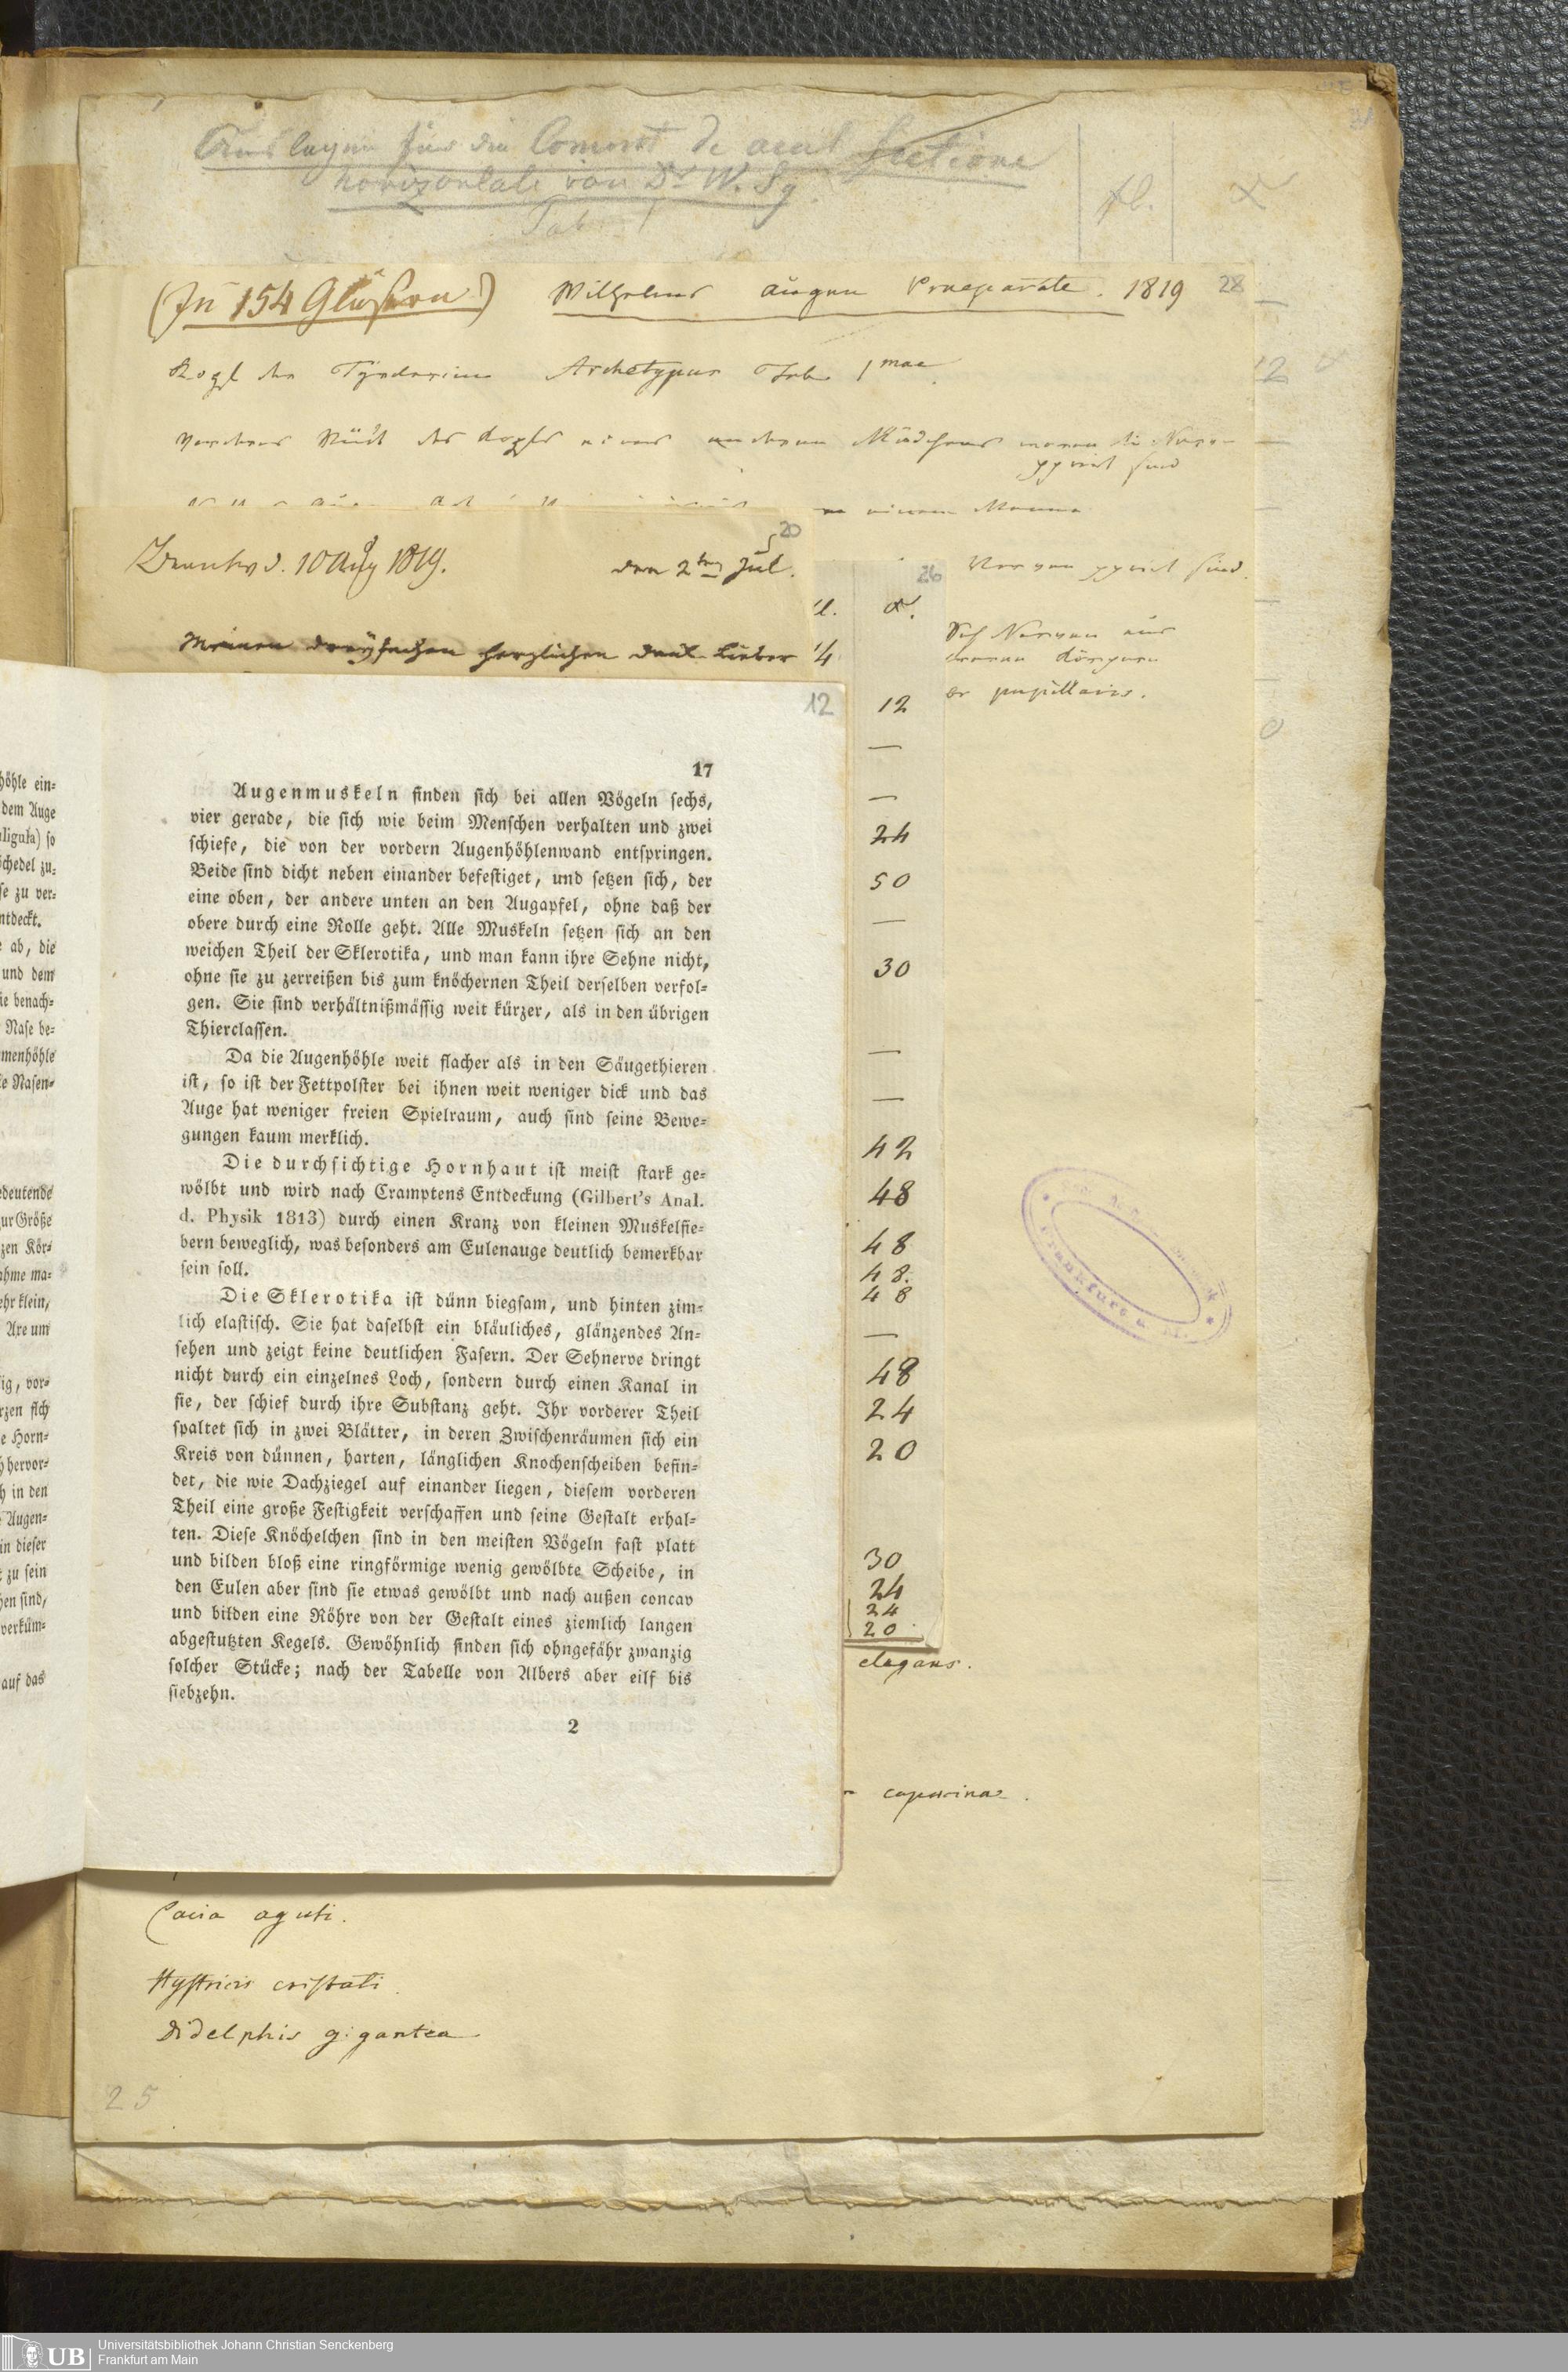 horizontali von Dr W. Sg
Tab. I
fl.
31
(In 154 Gläsern) Wilhelms augen Praeparate. 1819 28
Kopf der Archetypus Tab 1mae
12
einem Manne
20
d. 10 Aug 1819. den 2ten Jul.
26
Nerven injicirt sind.
Meinen dreyfachen herzlichen Dank Lieber
Nerven aus
pupillaris.
12
—
—
24
50
—
30
—
—
42
48
48
48.
48
—
48
24
20
30
24
24
20
elegans.
12
17
Augenmuskeln finden ſich bei allen Vögeln ſechs,
vier gerade, die ſich wie beim Menſchen verhalten und zwei
ſchiefe, die von der vordern Augenhöhlenwand entſpringen.
Beide ſind dicht neben einander befeſtiget, und ſetzen ſich, der
eine oben, der andere unten an den Augapfel, ohne daß der
obere durch eine Rolle geht. Alle Muskeln ſetzen ſich an den
weichen Theil der Sklerotika, und man kann ihre Sehne nicht,
ohne ſie zu zerreißen bis zum knöchernen Theil derſelben verfol=
gen. Sie ſind verhältnißmäſſig weit kürzer, als in den übrigen
Thierclaſſen.
Da die Augenhöhle weit flacher als in den Säugethieren
iſt, ſo iſt der Fettpolſter bei ihnen weit weniger dick und das
Auge hat weniger freien Spielraum, auch ſind ſeine Bewe=
gungen kaum merklich.
Die durchſichtige Hornhaut iſt meiſt ſtark ge=
wölbt und wird nach Cramptens Entdeckung (Gilbert's Anal.
d. Physik 1813) durch einen Kranz von kleinen Muskelfie=
bern beweglich, was beſonders am Eulenauge deutlich bemerkbar
ſein ſoll.
Die Sklerotika iſt dünn biegſam, und hinten zim=
lich elaſtiſch. Sie hat daſelbſt ein bläuliches, glänzendes An=
ſehen und zeigt keine deutlichen Faſern. Der Sehnerve dringt
nicht durch ein einzelnes Loch, ſondern durch einen Kanal in
ſie, der ſchief durch ihre Subſtanz geht. Ihr vorderer Theil
ſpaltet ſich in zwei Blätter, in deren Zwiſchenräumen ſich ein
Kreis von dünnen, harten, länglichen Knochenſcheiben befin=
det, die wie Dachziegel auf einander liegen, dieſem vorderen
Theil eine große Feſtigkeit verſchaffen und ſeine Geſtalt erhal=
ten. Dieſe Knöchelchen ſind in den meiſten Vögeln faſt platt
und bilden bloß eine ringförmige wenig gewölbte Scheibe, in
den Eulen aber ſind ſie etwas gewölbt und nach außen concav
und bilden eine Röhre von der Geſtalt eines ziemlich langen
abgeſtutzten Kegels. Gewöhnlich finden ſich ohngefähr zwanzig
ſolcher Stücke; nach der Tabelle von Albers aber eilf bis
ſiebzehn.
2
Cavia aguti.
Hyſtricis criſtati.
Didelphis gigantea
25
höhle ein=
dem Auge
ſo
zu ver=
ntdeckt.
ab, die
und dem
ie benach=
Naſe be=
menhöhle
Naſen=
edeutende
ur Größe
zen Kör=
ahme ma=
ehr klein,
Axe um
ig, vor=
rzen ſich
e Horn=
hervor=
h in den
Augen=
in dieſer
zu ſein
ſind,
verküm=
auf das
Frankfurt a. M.
UB
Universitätsbibliothek Johann Christian Senckenberg
Frankfurt am Main